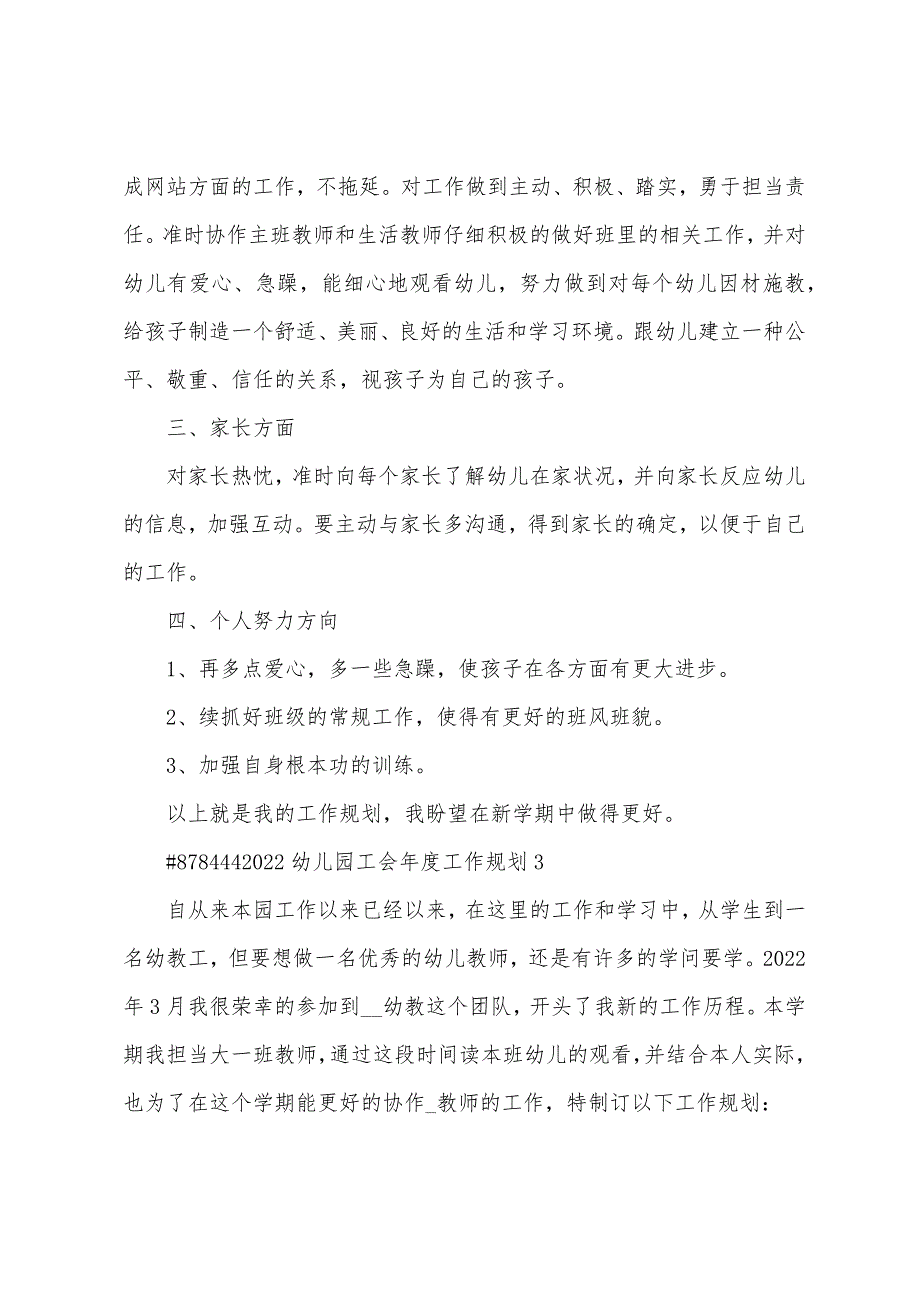 成网站方面的工作，不拖延。对工作做到主动、积极、踏实，勇于担当责
任。准时协作主班教师和生活教师仔细积极的做好班里的相关工作，并对
幼儿有爱心、急躁，能细心地观看幼儿，努力做到对每个幼儿因材施教，
给孩子制造一个舒适、美丽、良好的生活和学习环境。跟幼儿建立一种公
平、敬重、信任的关系，视孩子为自己的孩子。
三、家长方面
对家长热忱，准时向每个家长了解幼儿在家状况，并向家长反应幼儿
的信息，加强互动。要主动与家长多沟通，得到家长的确定，以便于自己
的工作。
四、个人努力方向
1、再多点爱心，多一些急躁，使孩子在各方面有更大进步。
2、续抓好班级的常规工作，使得有更好的班风班貌。
3、加强自身根本功的训练。
以上就是我的工作规划，我盼望在新学期中做得更好。
#8784442022 幼儿园工会年度工作规划 3
自从来本园工作以来已经以来，在这里的工作和学习中，从学生到一
名幼教工，但要想做一名优秀的幼儿教师，还是有许多的学问要学。2022
年 3 月我很荣幸的参加到__幼教这个团队，开头了我新的工作历程。本学
期我担当大一班教师，通过这段时间读本班幼儿的观看，并结合本人实际，
也为了在这个学期能更好的协作_教师的工作，特制订以下工作规划：